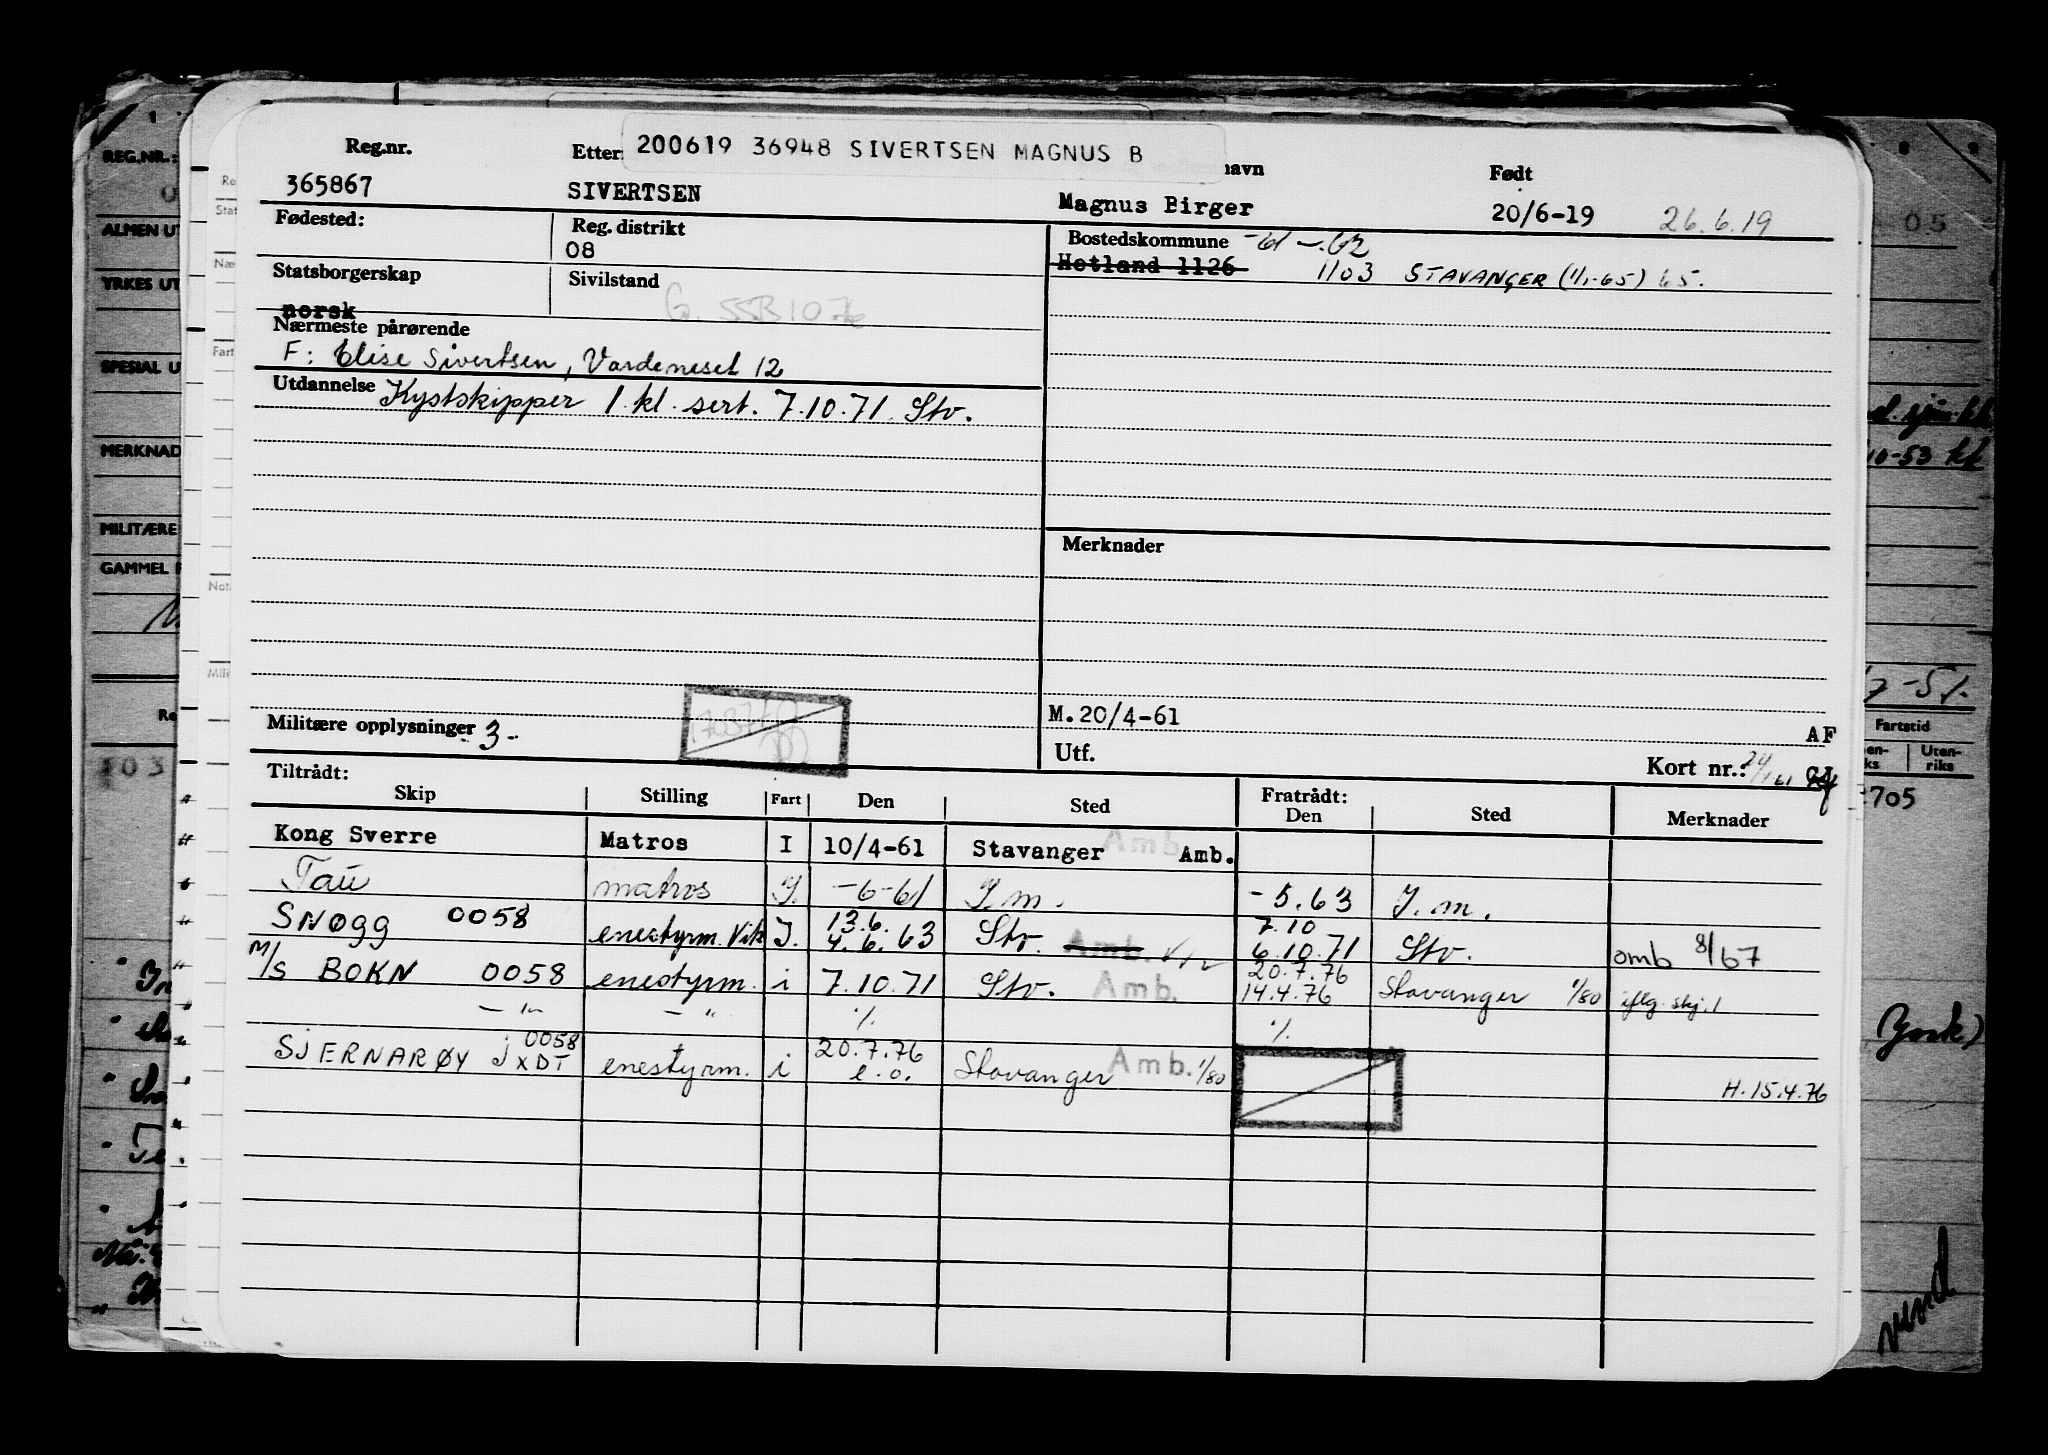 200619 36948 SIVERTSEN MAGNUS B
Reg.nr. Etter avn Født
365867 SIVERTSEN Magnus Birger 20/6-19 26.6.19
Fødested: Reg. distrikt Bostedskommune -61 -.62
08 Hetland 1126 1103 STAVANGER (1/1-65) 65.
Statsborgerskap Sivilstand
norsk G. SSB 10 76
Nærmeste pårørende
F: Elise Sivertsen, Vardeneset 12
Utdannelse Kystskipper 1. kl. sert. 7.10.71. Stv.
Merknader
Militære opplysninger 3-
M.20/4-61
AF
Utf. Kort nr.:
Tiltrådt: Fratrådt:
Skip Stilling Fart Den Sted Den Sted Merknader
Kong Sverre Matros I 10/4-61 Stavanger Amb. Amb.
Tau matros I. -6-61 I.m. -5.63 I.m.
13.6. 7.10
SNØGG 0058 enestyrm. Vik I. 4.6.63 Stv. Amb. 6.10.71 Stv. omb 8/67
20.7.76
M/S BOKN 0058 enestyrm. i 7.10.71 Stv. Amb. 14.4.76 Stavanger 1/80 iflg. skj. 1
- " - - " ./. ./.
0058 20.7.76
SJERNARØY JXDT enestyrm. i e.o. Stavanger Amb. 1/80
H.15.4.76
REG.NR.:
ALMEN UT
YRKES UT
SPESIAL U
MERKNAD
MILITÆRE
GAMMEL
05
10-53 kk
Fartstid
Uten-
riks
705